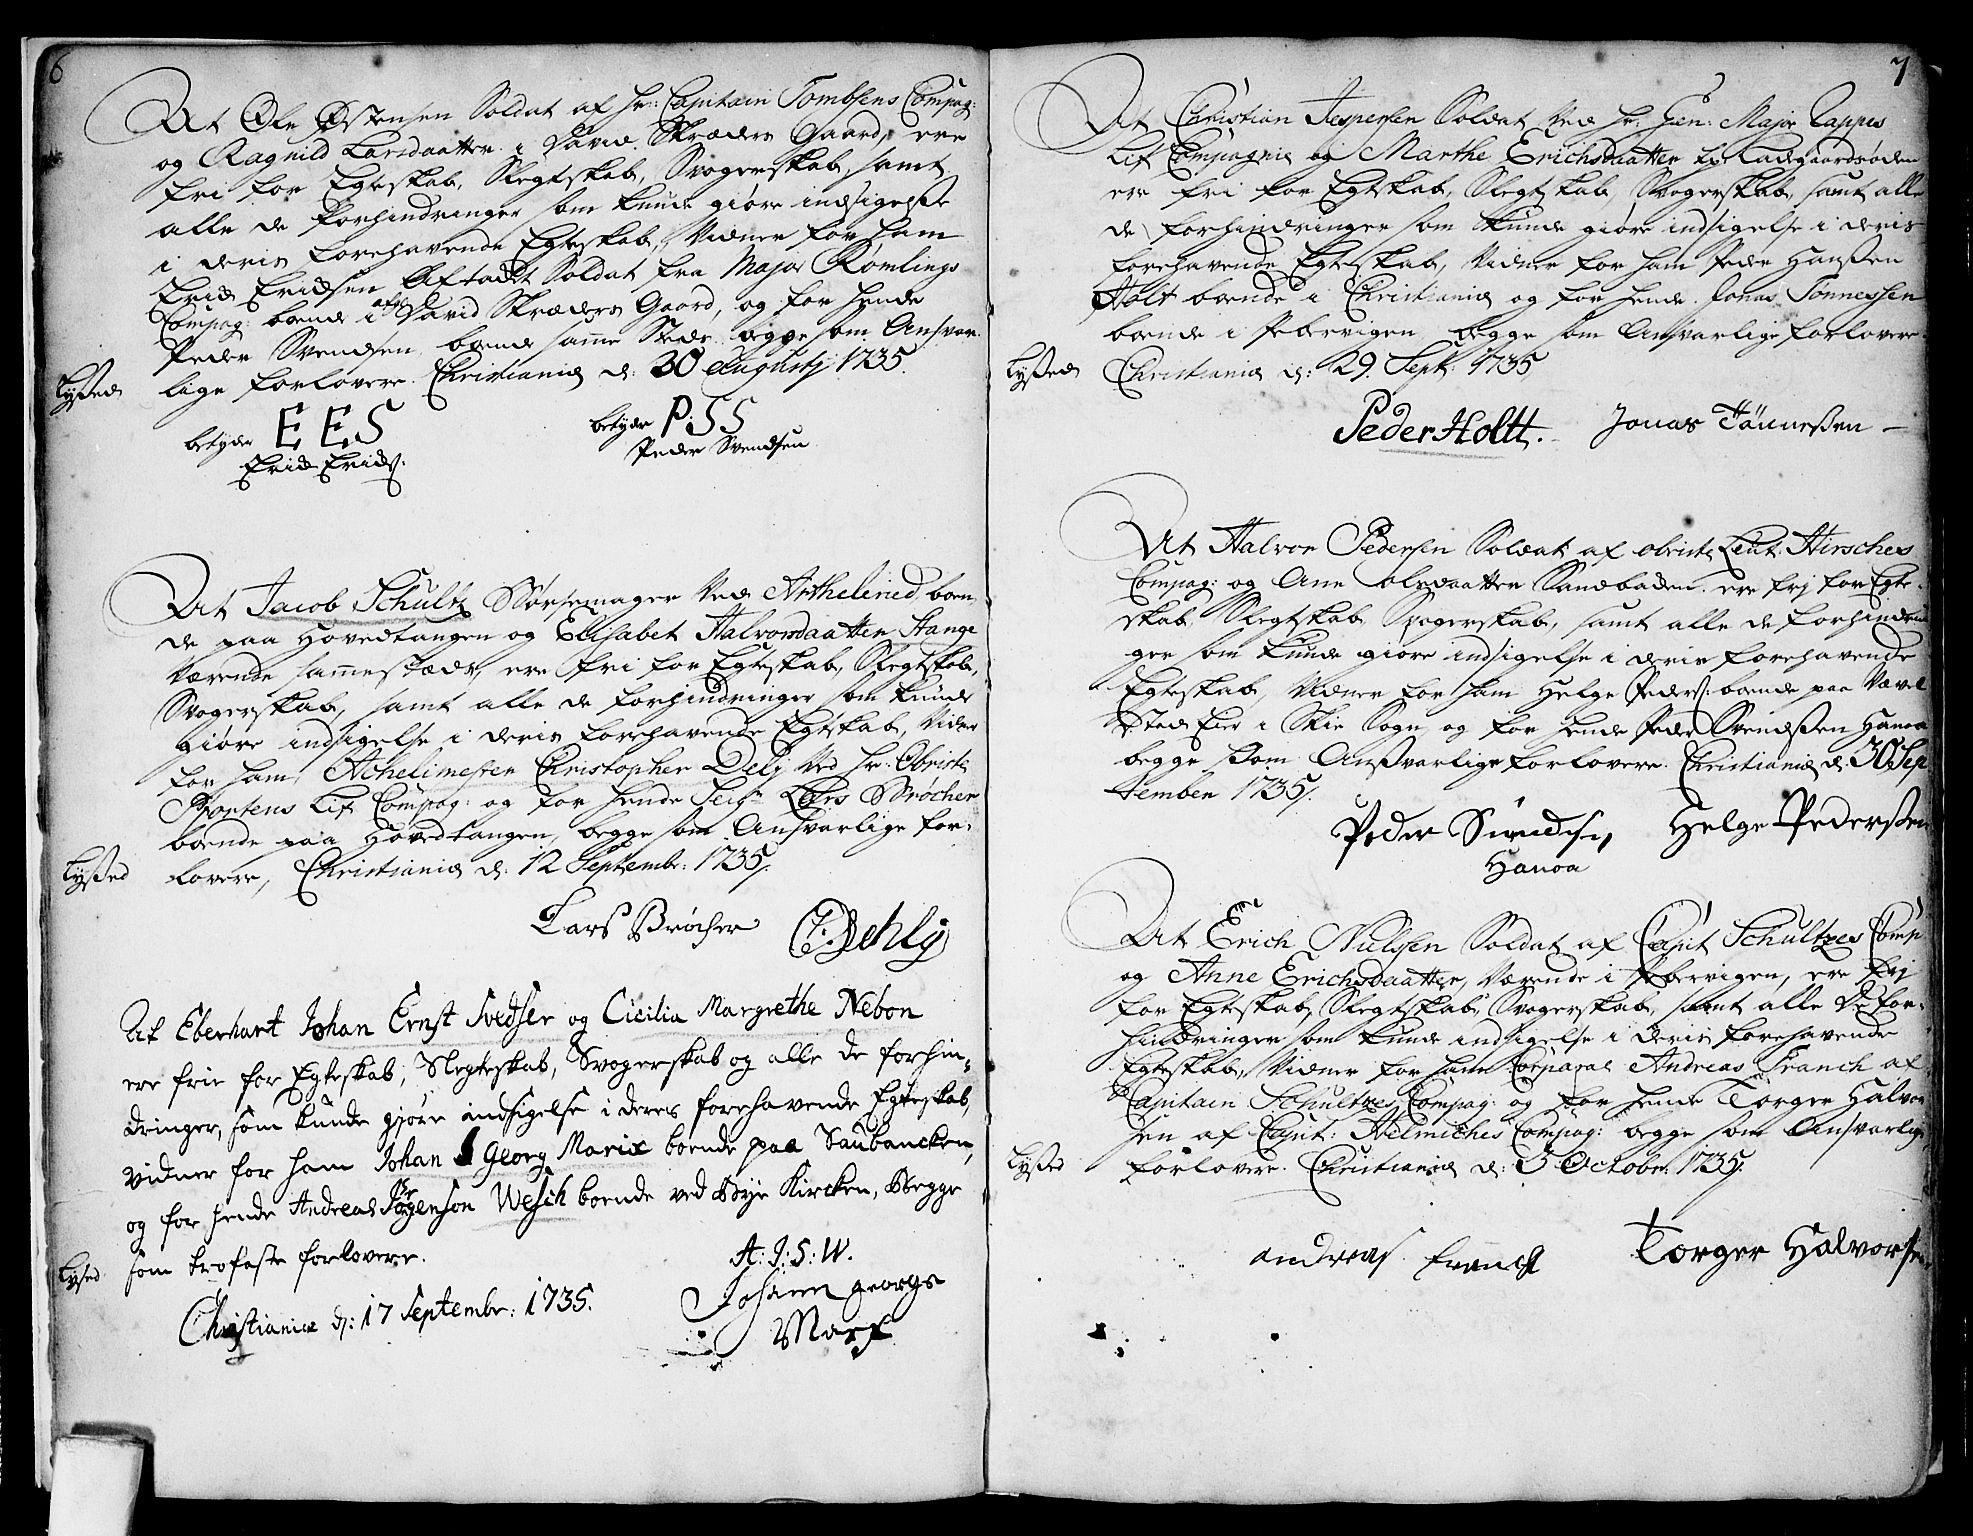 6
At Ole Østensen Soldat af Hr: Capitain Tombsens Compag:
og Ragnild Larsdaatter i David Skræders Gaard, ere
fri for Egteskab, Slegtskab, Svogerskab, samt
alle de forhindringer som kunde giøre indsigelse
i deris forehavende Egteskab, Vidner for ham
Erich Erichsen Aftackt Soldat fra Major Römlings
Compag: boende i afg: David Skræders Gaard, og for hende
Peder Svendsen boende samme Stæd begge som Ansvar-
lige forlovere. Christiania d: 30 Augustj 1735.
Lysed
betyder EES betyder P.SS
Erich Erichs: Peder Svendsen
At Jacob Schultz Børsemager Ved Arthelleried boen-
de paa Hovedtangen og Elisabet Halvorsdaatter Stange
værende sammestæds, ere fri for Egteskab, Slegtskab,
Svogerskab, samt alle de forhindringer som kunde
giøre indsigelse i deris forehavende Egteskab, Vidner
for ham Christopher Delj Ved Hr. Obriste
Lif Compag: og for hende Lars Brøcher
boende paa Hovedtangen, begge som Ansvarlige for-
lovere, Christiania d: 12 Septembr: 1735.
Lysed
Lars Brøcher C: Dehlj
At Eberhart Johan Ernst og Cicilia Margrethe Nebon
ere frie for Egteskab, Slegteskab, Svogerskab og alle de forhin-
dringer, som kunde gjøre indsigelse i deres forehavende Egteskab,
vidner for ham Johan Georg Marix boende paa Saubancken,
og for hende Andreas Jørgenson Wesch boende ved Bye Kircken, Begge
som trofaste forlovere.
Lysed
A: J: S: W.
Christianiæ d: 17 Septembr: 1735.
Johan georgs
Marx
7
At Christian Jespersen Soldat Ved Hr. Gen: Major Zappes
Lif Compagnie og Marthe Erichsdaatter
ere fri for Egteskab, Slegtskab, Svogerskab, samt alle
de forhindringer som kunde giøre indsigelse i deris
forehavende Egteskab, Vidner for ham Peder Hansen
Holt boende i Christiania og for hende Jonas Tønnessen
boende i Pebervigen begge som Ansvarlige forlovere.
Lysed Christiania d: 29. Sept: 1735
Peder Holtt. Jonas Tönneßen
At Halvor Pedersen Soldat af obriste Leut: Hirsches
Compag: og Ane Olsdaatter Sandbacken ere frj for Egte-
skab, Slegtskab, Svogerskab, samt alle de forhindrin-
ger som kunde giøre indsigelse i deris forehavende
Egteskab, Vidner for ham Helge Peders: boende paa
Eier i Skie Sogn og for hende Peder Svendsen Hanoa
begge som Ansvarlige forlovere. Christiania d: 30 Sep
tember 1735.
Peder Svendsen Helge Pederßen
Hanoa
At Erich Nielssen Soldat af Capit Schultzes Comp
og Anne Erichsdaatter, Værende i Pebervigen, ere frj
for Egteskab, Slegtskab, Svogerskab, samt alle de for-
hindringer som kunde indsigelse i deris forehavende
Egteskab, Vidner for ham Corporal Andreas Franch af
Capitain Schultzes Compag: og for hende Torger Halvor
sen af Capit: Helmiches Compag: begge som Ansvarlige
Lysed forlovere. Christiania d: 3 October 1735.
andreas franck Torger Halvorsen